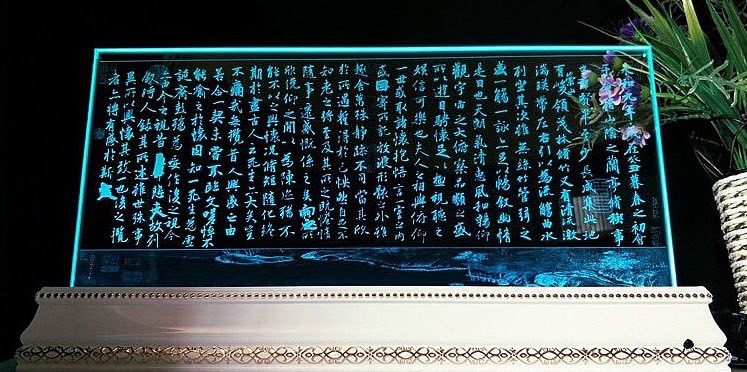 永和九年歲在癸丑暮春之初會
稽山陰之蘭亭脩稧事
也羣賢畢至少長咸集此地
有崇山峻領茂林脩竹又有清流激
湍暎帶左右引以為流觴曲水
列坐其次雖無絲竹管弦之
盛一觴一詠亦足以暢敘幽情
是日也天朗氣清惠風和暢仰
觀宇宙之大俯察品類之盛
所以遊目騁懷足以極視聽之
娛信可樂也夫人之相與俯仰
一世或取諸懷抱悟言一室之內
或因寄所託放浪形骸之外雖
趣舍萬殊靜躁不同當其欣
於所遇暫得於己快然自足不
知老之將至及其所之既惓情
隨事遷感慨係之矣向之所
欣俛仰之間以為陳迹猶不
能不以之興懷況脩短隨化終
期於盡古人云死生亦大矣豈
不痛哉每攬昔人興感之由
若合一契未嘗不臨文嗟悼不
能喻之於懷固知一死生為虛
誕齊彭殤為妄作後之視今
亦由今之視昔悲夫故列
敘時人錄其所述雖世殊事
異所以興懷其致一也後之攬
者亦將有感於斯